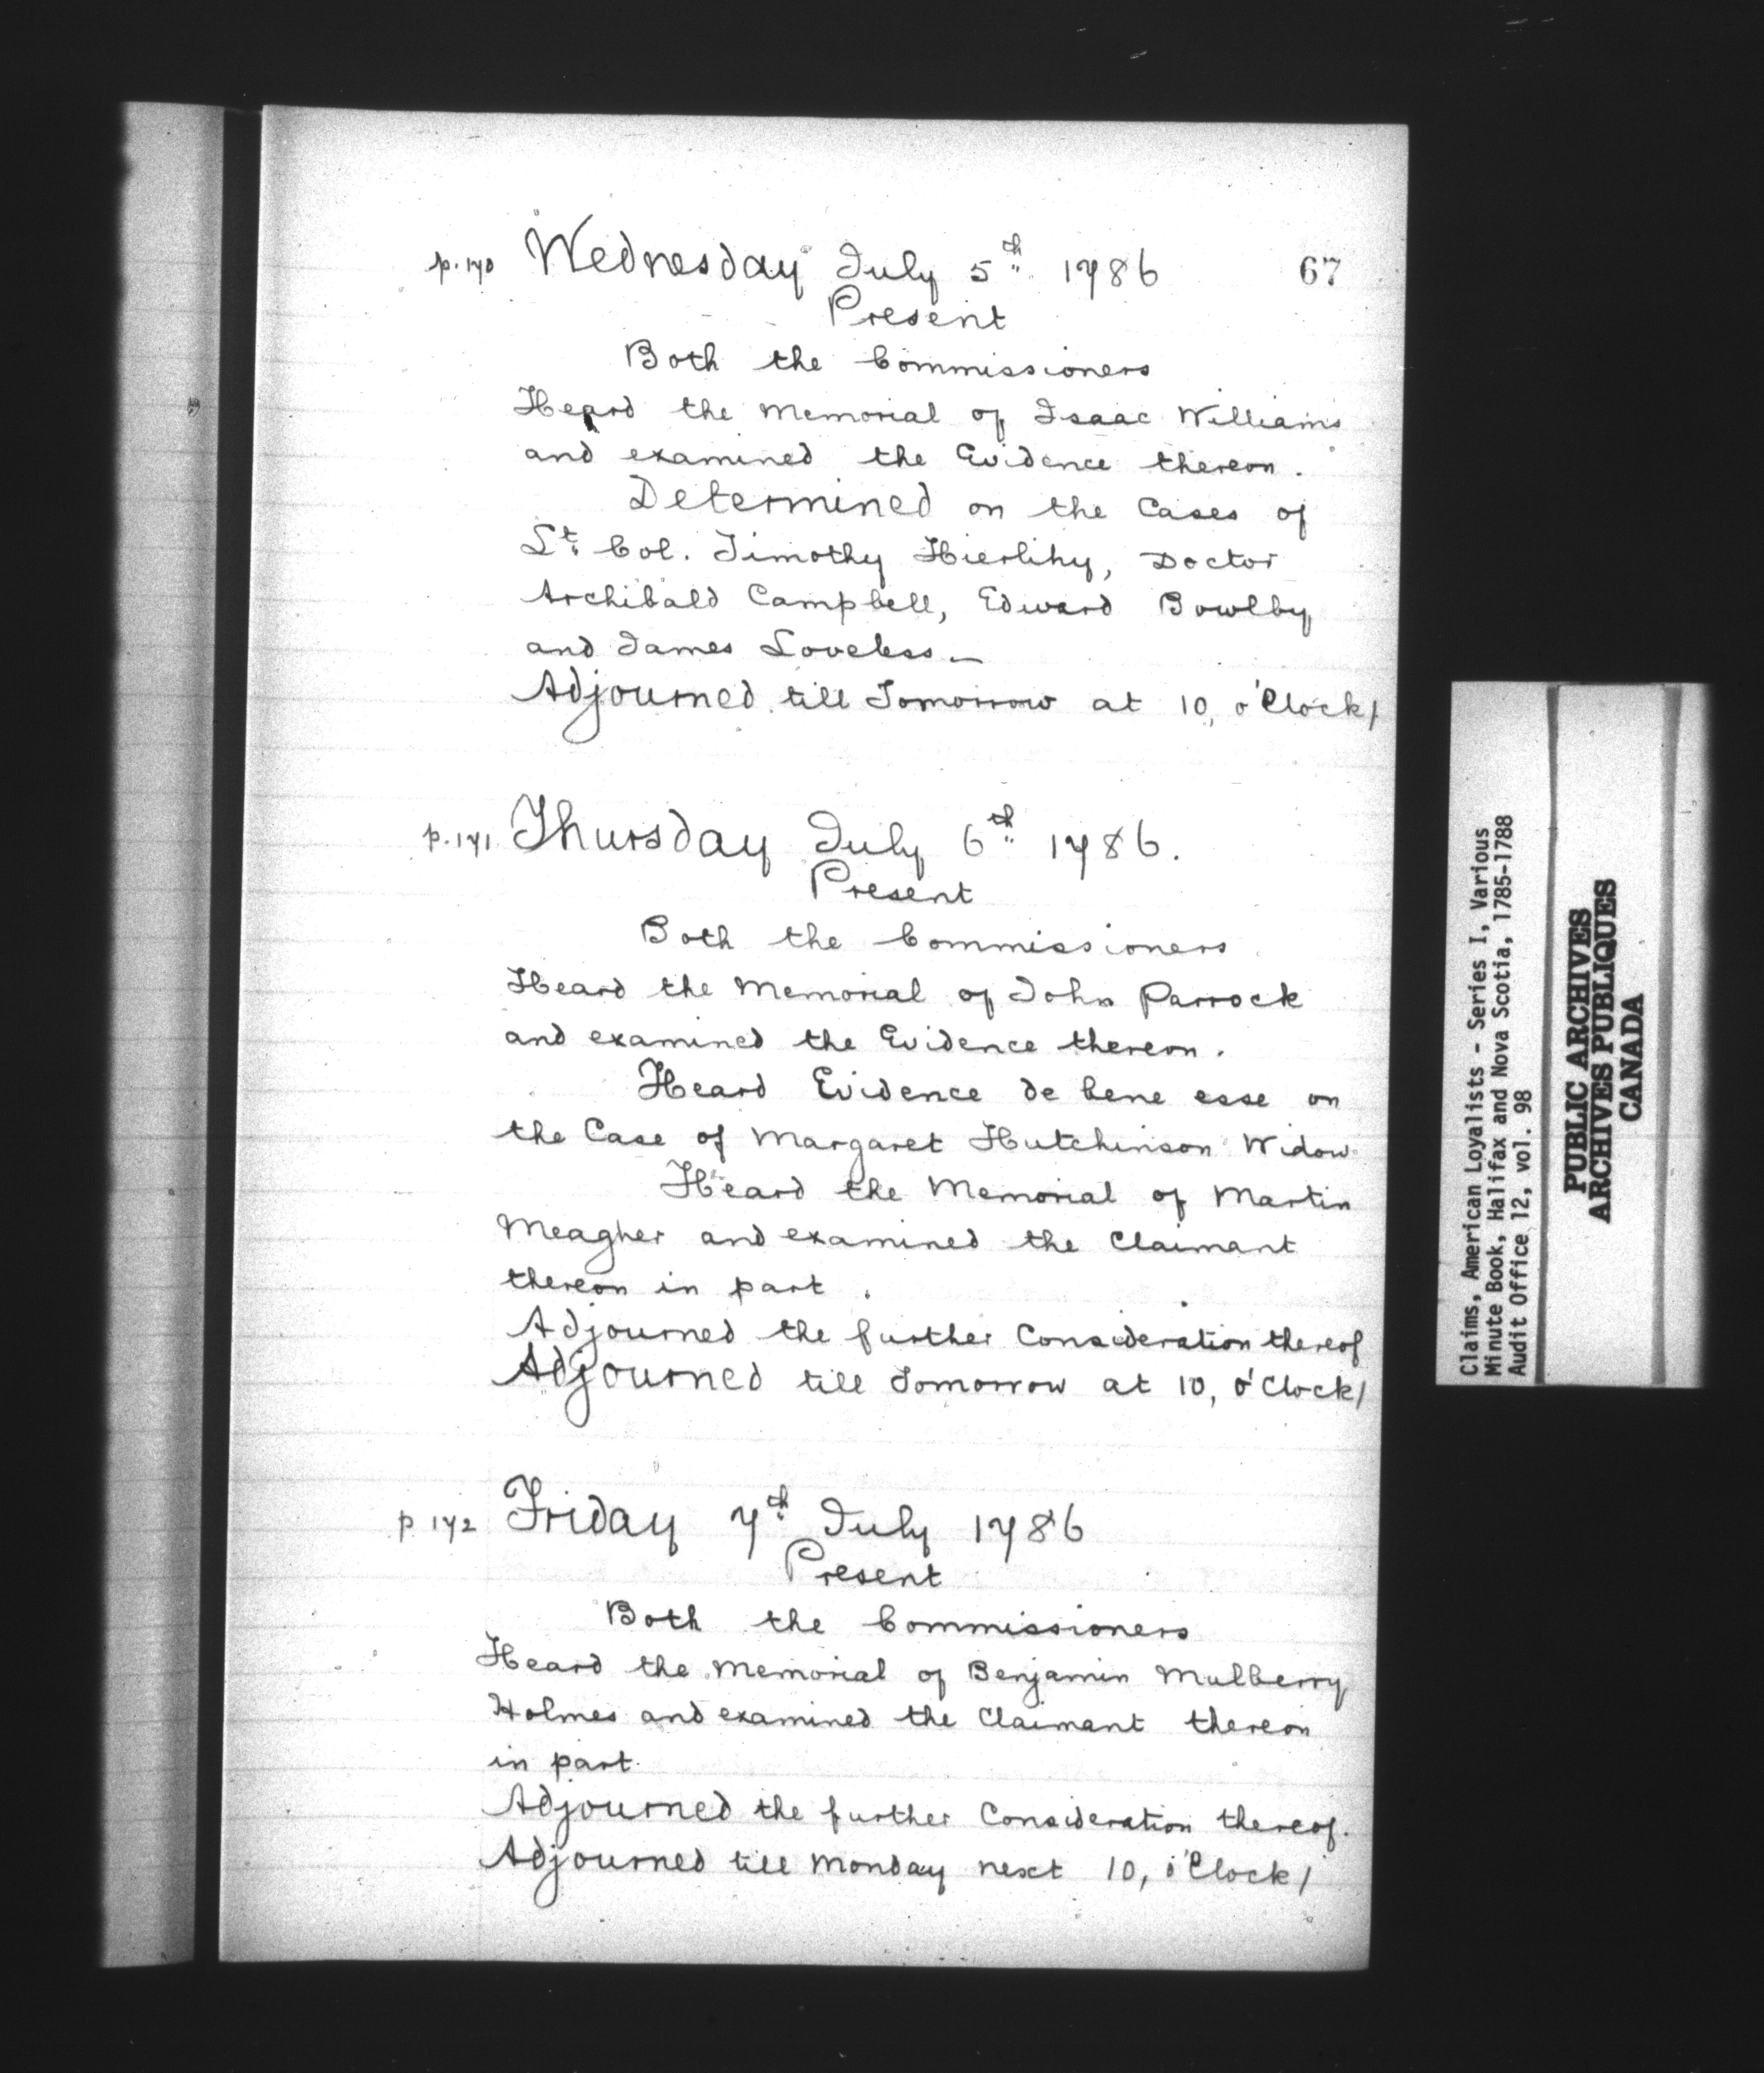 p.170 Wednesday July 5th 1786 67
Present
Both the Commissioners
Heard the Memorial of Isaac Williams
and examined the Evidence thereon.
Determined on the Cases of
Lt. Col. Timothy Hierlihy, Doctor
Archibald Campbell, Edward Bowlby
and James Loveless_
Adjourned till Tomorrow at 10, o'Clock/
p.171 Thursday July 6th 1786.
Present
Both the Commissioners
Heard the Memorial of John Parrock
and examined the Evidence thereon.
Heard Evidence de bene esse on
the Case of Margaret Hutchinson Widow
Heard the Memorial of Martin
Meagher and examined the Claimant
thereon in part.
Adjourned the further Consideration thereof
Adjourned till Tomorrow at 10, o'Clock/
p 172 Friday 7th July 1786
Present
Both the Commissioners
Heard the Memorial of Benjamin Mulberry
Holmes and examined the Claimant thereon
in part.
Adjourned the further Consideration thereof.
Adjourned till Monday next 10, o'Clock/
Claims, American Loyalists - Series I, Various
Minute Book, Halifax and Nova Scotia, 1785-1788
Audit Office 12, vol. 98
PUBLIC ARCHIVES
ARCHIVES PUBLIQUES
CANADA